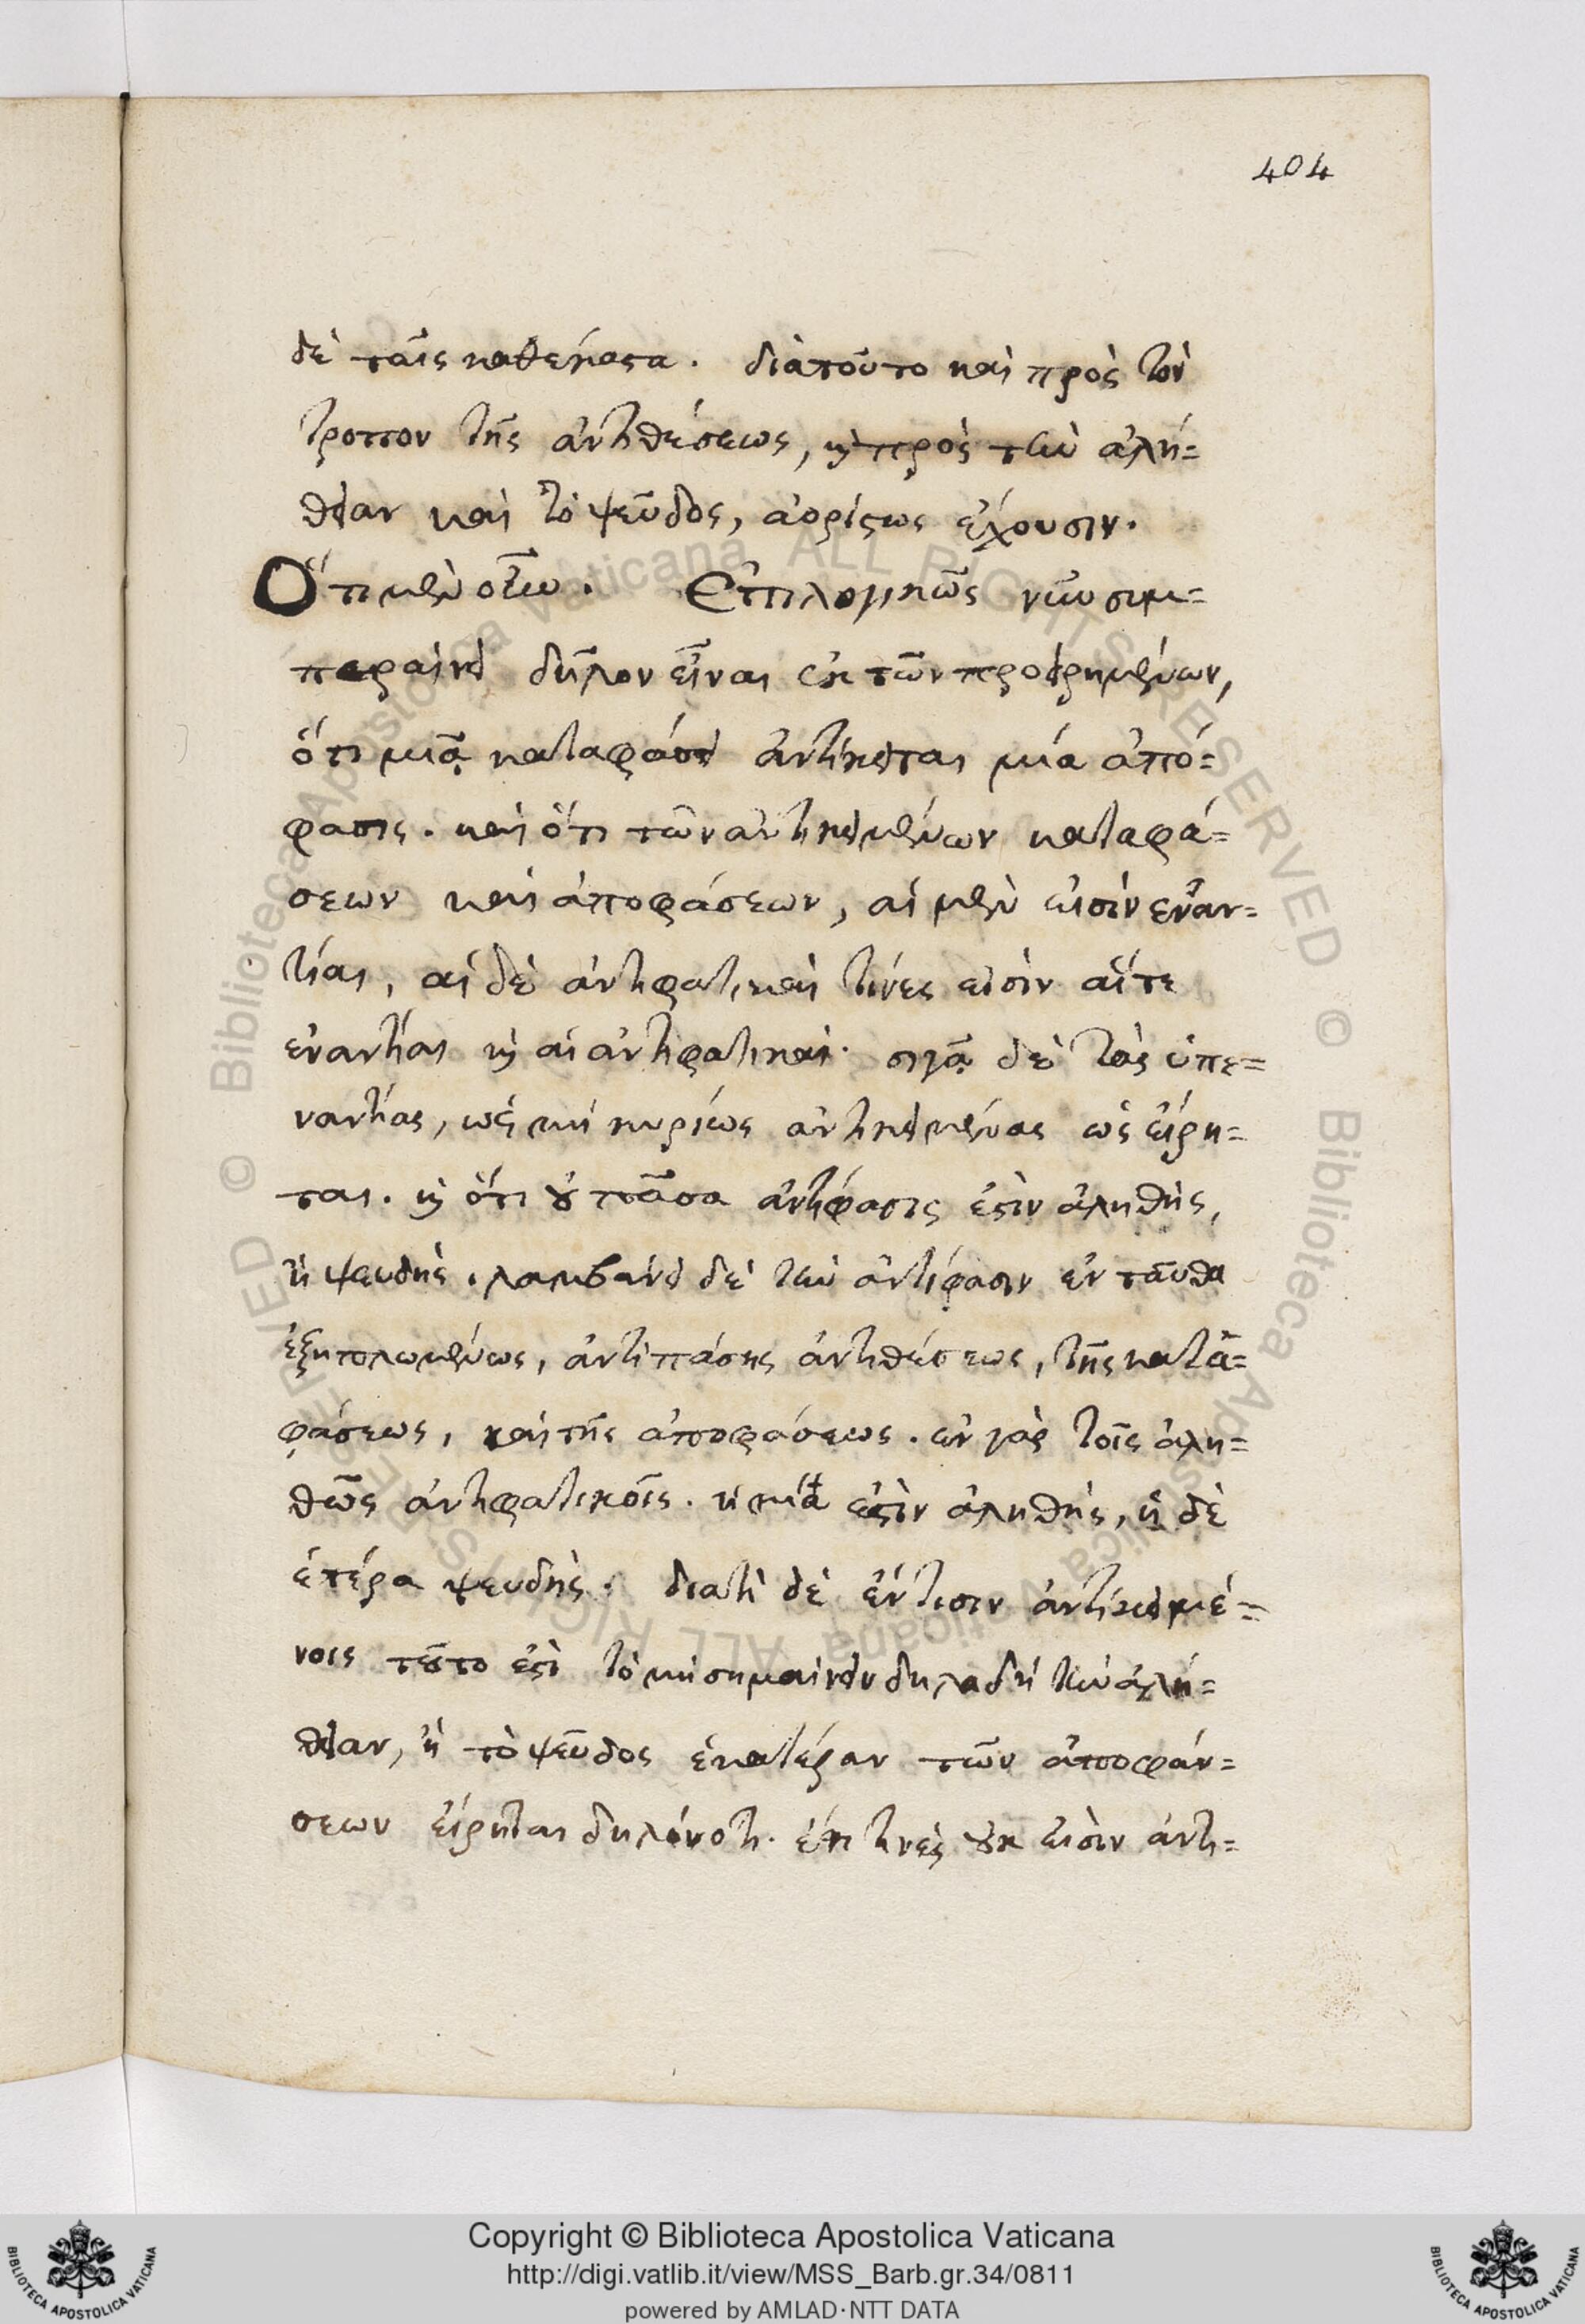 404
δὲ ταῖς καθέκαστα. διατοῦτο καὶ πρὸς τὸν
τρόπον τῆς ἀντιθέσεως, καὶ πρὸς τὴν ἀλή=
θειαν καὶ τὸ ψεῦδος, ἀορίστως ἔχουσιν.
Ὅτι μὲν οὖν. Ἐπιλογικῶς νῦν συμ=
περαίνει δῆλον εἶναι ἐκ τῶν προειρημένων,
ὅτι μιᾷ καταφάσει ἀντίκειται μία ἀπό=
φασις. καὶ ὅτι τῶν ἀντικειμένων καταφά=
σεων καὶ ἀποφάσεων, αἱ μὲν εἰσὶν ἐναν=
τίαι, αἱ δὲ ἀντιφατικαὶ τίνες εἰσὶν αἵτε
ἐναντίαι καὶ αἱ ἀντιφατικαί. σιγᾷ δὲ τὰς ὑπε=
ναντίας, ὡς μὴ κυρίως ἀντικειμένας ὡς εἴρη=
ται. καὶ ὅτι οὐ πᾶσα ἀντίφασις ἐστὶν ἀληθὴς,
ἢ ψευδής. λαμβάνει δὲ τὴν ἀντίφασιν ἐνταῦθα
ἐξηπλωμένως, ἀντὶ πάσης ἀντιθέσεως, τῆς κατα=
φάσεως, καὶ τῆς ἀποφάσεως. ἐν γὰρ τοῖς ἀλη=
θῶς ἀντιφατικοῖς. ἡ μία ἐστὶν ἀληθὴς, ἡ δὲ
ἑτέρα ψευδής. διατί δὲ ἔν τισιν ἀντικειμέ=
νοις τοῦτο ἐστὶ τὸ μὴ σημαίνειν δηλαδὴ τὴν ἀλή=
θειαν, ἢ τὸ ψεῦδος ἑκατέραν τῶν ἀποφάν=
σεων εἴρηται δηλόνοτι. τινὲς οὐκ εἰσὶν ἀντι=
Copyright © Biblioteca Apostolica Vaticana
http://digi.vatlib.it/view/MSS_Barb.gr.34/0811
powered by AMLAD·NTT DATA